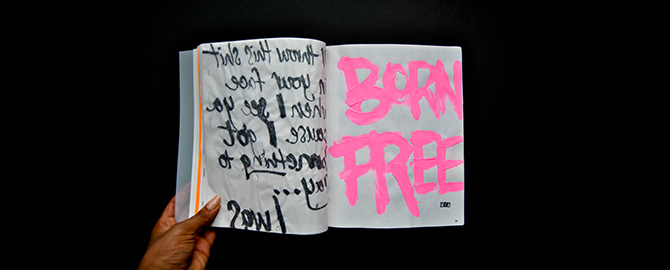 I throw this shit
in your face
when I see ya
cause I got
something to
say...
I was
BORN
FREE